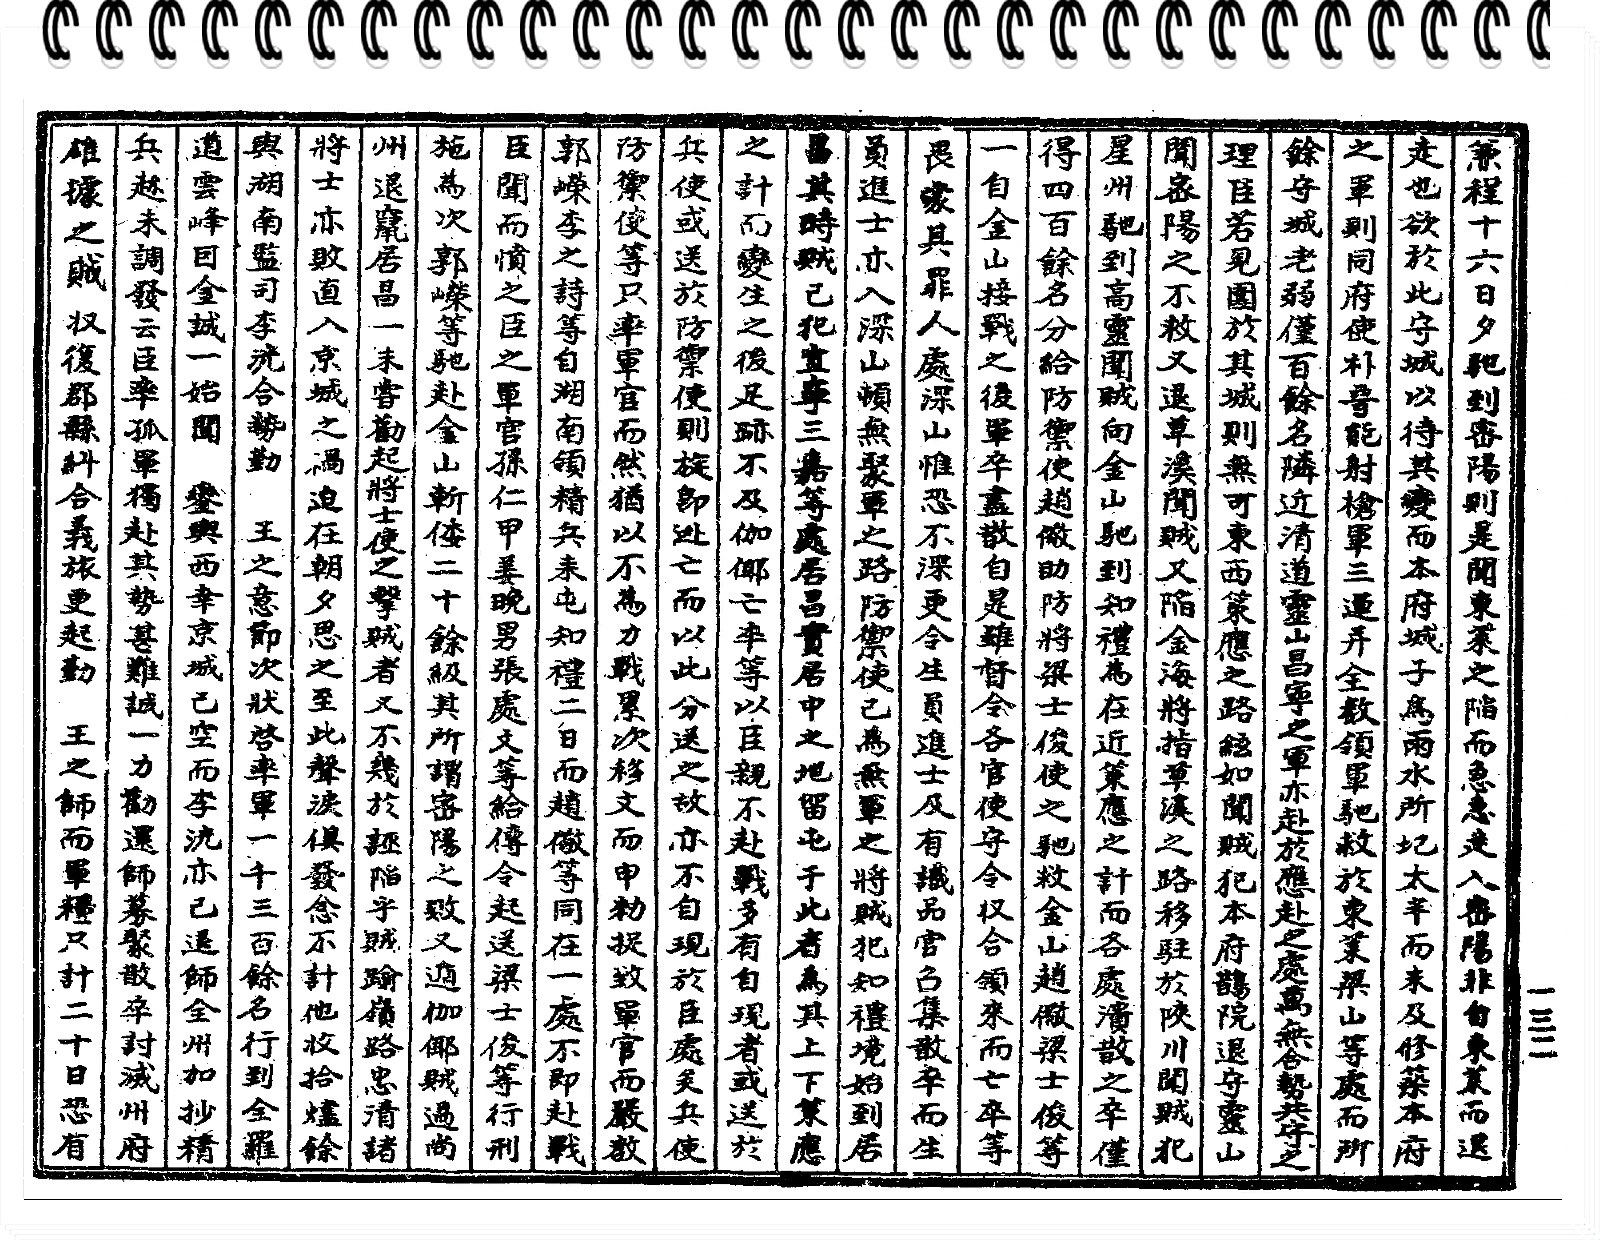 兼程十六日夕馳到密陽則是聞東萊之陷而急急走入密陽非自東萊而退
走也欲於此守城以待其變而本府城子為雨水所圮太半而未及修築本府
之軍則同府使朴晉能射槍軍三運幷全數領軍馳救於東萊梁山等處而所
餘守城老弱僅百餘名隣近清道靈山昌寧之軍亦赴於應赴之處萬無合勢共守之
理臣若見圍於其城則無可東西策應之路絃如聞賊犯本府鵲院退守靈山
聞密陽之不救又退草溪聞賊又陷金海將指草溪之路移駐於陜川聞賊犯
星州馳到高靈聞賊向金山馳到知禮為在近策應之計而各處潰散之卒僅
得四百餘名分給防禦使趙儆助防將梁士俊使之馳救金山趙儆梁士俊等
一自金山接戰之後軍卒盡散自是雖督令各官使守令收合領來而亡卒等
畏其罪人處深山惟恐不深更令生員進士及有識品官召集散卒而生
員進士亦入深山頓無聚軍之路防禦使已為無軍之將賊犯知禮境始到居
昌其時賊已犯宜寧三嘉等處居昌實居中之地留屯于此者為其上下策應
之計而變生之後足跡不及伽倻亡卒等以臣親不赴戰多有自現者或送於
兵使或送於防禦使則旋即逃亡而以此分送之故亦不自現於臣處矣兵使
防禦使等只率軍官而然猶以不為力戰累次移文而申勅捉致軍官而嚴敎
郭嶸李之詩等自湖南領精兵來屯知禮二日而趙儆等同在一處不即赴戰
臣聞而憤之臣之軍官孫仁甲姜晚男張處文等給傳令起送梁士俊等行刑
施為次郭嶸等馳赴金山斬倭二十餘級其所謂密陽之敗又遁伽倻賊過尚
州退竄居昌一未嘗勸起將士使之擊賊者又不幾於誣陷乎賊踰嶺路忠清諸
將士亦敗直入京城之禍迫在朝夕思之至此聲淚俱發念不計他收拾燼餘
與湖南監司李洸合勢勤　王之意節次狀啓率軍一千三百餘名行到全羅
道雲峰囙金誠一始聞　鑾輿西幸京城已空而李洸亦已退師全州加抄精
兵趂未調發云臣率孤軍獨赴其勢甚難誠一力勸還師募聚散卒討滅州府
雄據之賊收復郡縣糾合義旅更起勤　王之師而軍糧只計二十日恐有
一三二